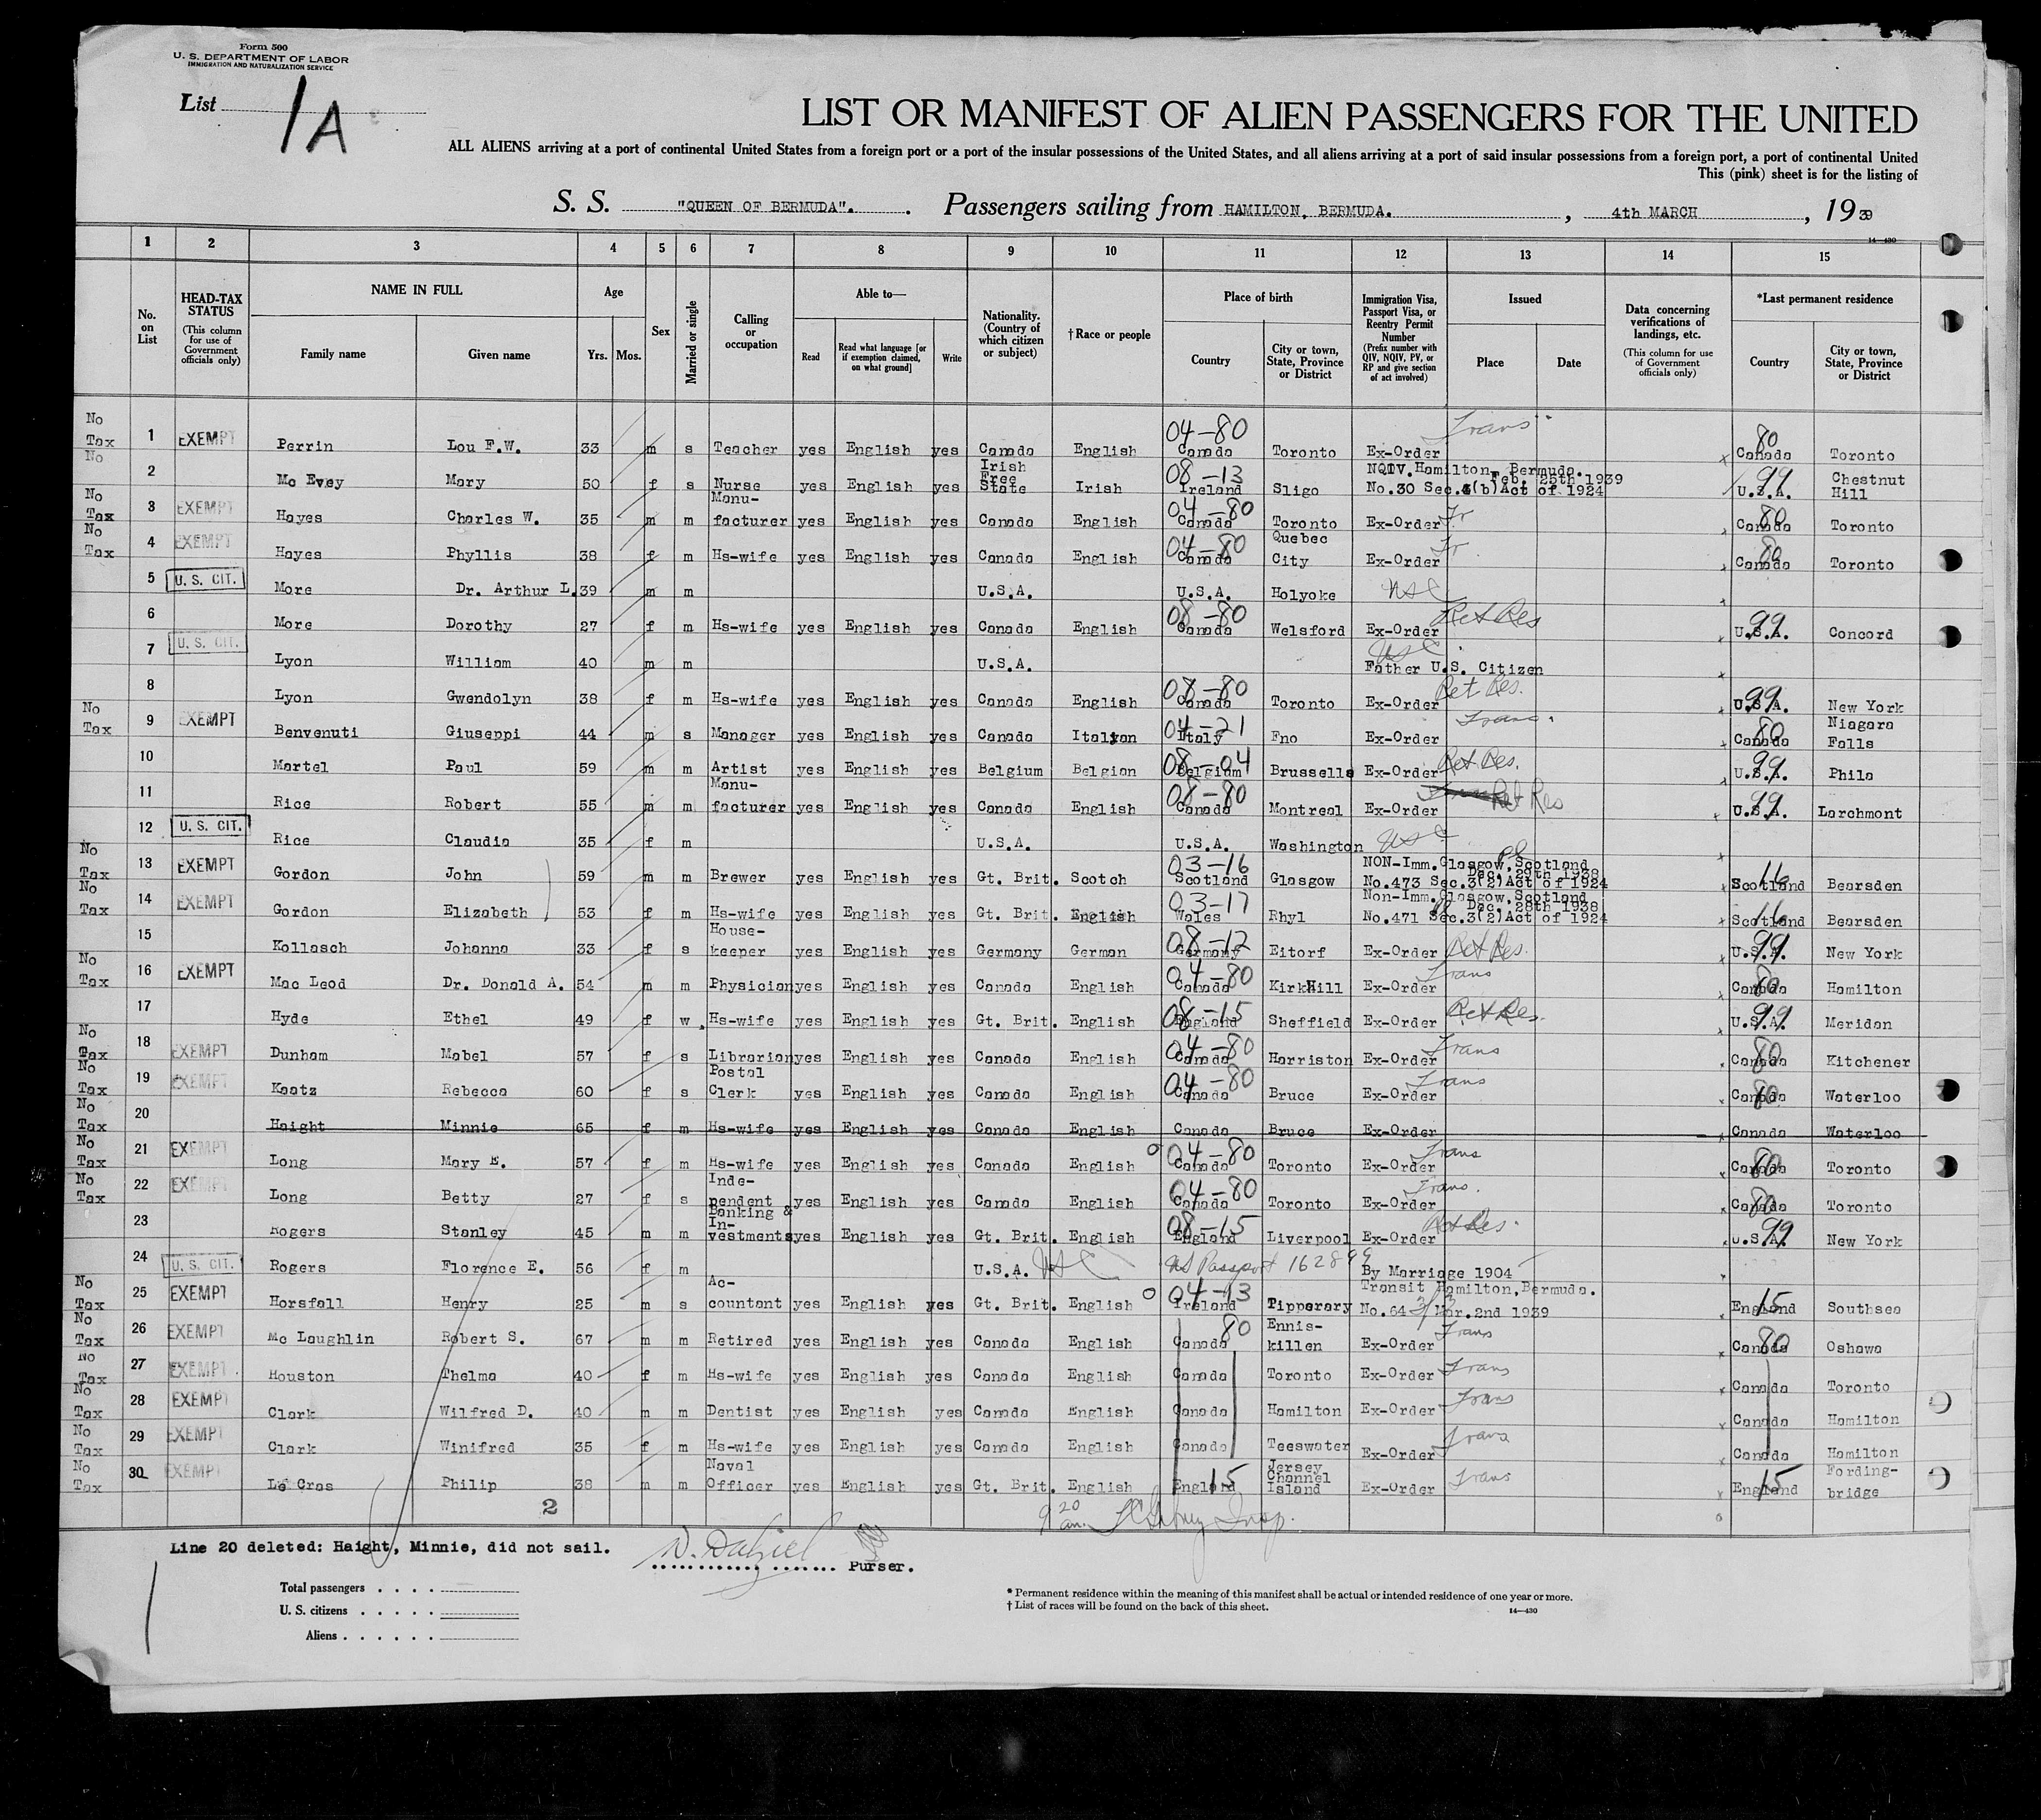 Form 500
U. S. DEPARTMENT OF LABOR
IMMIGRATION AND NATURALIZATION SERVICE
List 1A
LIST OR MANIFEST OF ALIEN PASSENGERS FOR THE UNITED
ALL ALIENS arriving at a port of continental United States from a foreign port or a port of the insular possessions of the United States, and all aliens arriving at a port of said insular possessions from a foreign port, a port of continental United
This (pink) sheet is for the listing of
S. S. "QUEEN OF BERMUDA". Passengers sailing from HAMILTON, BERMUDA. , 4th MARCH , 1939
14—430
1 2 3 4 5 6 7 8 9 10 11 12 13 14 15
No. on List
HEAD-TAX STATUS (This column for use of Government officials only)
NAME IN FULL Family name Given name
Age Yrs. Mos.
Sex
Married or single
Calling or occupation
Able to— Read Read what language [or if exemption claimed, on what ground] Write
Nationality. (Country of which citizen or subject)
† Race or people
Place of birth Country City or town, State, Province or District
Immigration Visa, Passport Visa, or Reentry Permit Number (Prefix number with QIV, NQIV, PV, or RP and give section of act involved)
Issued Place Date
Data concerning verifications of landings, etc. (This column for use of Government officials only)
*Last permanent residence Country City or town, State, Province or District
No Tax 1 EXEMPT Perrin Lou F.W. 33 m s Teacher yes English yes Canada English 04-80 Canada Toronto Ex-Order Trans 80 Canada Toronto
No 2 Mc Evey Mary 50 f s Nurse yes English yes Irish Free State Irish 08-13 Ireland Sligo NQIV. Hamilton, Bermuda. Feb. 25th 1939 No.30 Sec.4(b)Act of 1924 99 U.S.A. Chestnut Hill
No Tax 3 EXEMPT Hayes Charles W. 35 m m Manu-facturer yes English yes Canada English 04-80 Canada Toronto Ex-Order Tr 80 Canada Toronto
No Tax 4 EXEMPT Hayes Phyllis 38 f m Hs-wife yes English yes Canada English 04-80 Canada Quebec City Ex-Order Tr. 80 Canada Toronto
5 U. S. CIT. More Dr. Arthur L. 39 m m U.S.A. U.S.A. Holyoke USC
6 More Dorothy 27 f m Hs-wife yes English yes Canada English 08-80 Canada Welsford Ex-Order Ret Res 99 U.S.A. Concord
7 U. S. CIT. Lyon William 40 m m U.S.A. USC Father U.S. Citizen
8 Lyon Gwendolyn 38 f m Hs-wife yes English yes Canada English 08-80 Canada Toronto Ex-Order Ret Res. 99 U.S.A. New York
No Tax 9 EXEMPT Benvenuti Giuseppi 44 m s Manager yes English yes Canada Italian 04-21 Italy Fno Ex-Order Trans. 80 Canada Niagara Falls
10 Martel Paul 59 m m Artist yes English yes Belgium Belgian 08-04 Belgium Brussells Ex-Order Ret Res. 99 U.S.A. Phila
11 Rice Robert 55 m m Manu-facturer yes English yes Canada English 08-80 Canada Montreal Ex-Order Ret Res 99 U.S.A. Larchmont
12 U. S. CIT. Rice Claudia 35 f m U.S.A. U.S.A. Washington USC
No Tax 13 EXEMPT Gordon John 59 m m Brewer yes English yes Gt. Brit. Scotch 03-16 Scotland Glasgow NON-Imm.Glasgow,Scotland Dec. 29th 1938 No.473 Sec.3(2)Act of 1924 16 Scotland Bearsden
No Tax 14 EXEMPT Gordon Elizabeth 53 f m Hs-wife yes English yes Gt. Brit. English 03-17 Wales Rhyl Non-Imm.Glasgow,Scotland Dec. 28th 1938 No.471 Sec.3(2)Act of 1924 16 Scotland Bearsden
15 Kollasch Johanna 33 f s House-keeper yes English yes Germany German 08-12 Germany Eitorf Ex-Order Ret Res. 99 U.S.A. New York
No Tax 16 EXEMPT Mac Leod Dr. Donald A. 54 m m Physician yes English yes Canada English 04-80 Canada KirkHill Ex-Order Trans 80 Canada Hamilton
17 Hyde Ethel 49 f w. Hs-wife yes English yes Gt. Brit. English 08-15 England Sheffield Ex-Order Ret Res. 99 U.S.A. Meridan
No Tax 18 EXEMPT Dunham Mabel 57 f s Librarian yes English yes Canada English 04-80 Canada Harriston Ex-Order Trans 80 Canada Kitchener
No Tax 19 EXEMPT Kaatz Rebecca 60 f s Postal Clerk yes English yes Canada English 04-80 Canada Bruce Ex-Order Trans 80 Canada Waterloo
No Tax 20 Haight Minnie 65 f m Hs-wife yes English yes Canada English Canada Bruce Ex-Order Canada Waterloo
No Tax 21 EXEMPT Long Mary E. 57 f m Hs-wife yes English yes Canada English 04-80 Canada Toronto Ex-Order Trans 80 Canada Toronto
No Tax 22 EXEMPT Long Betty 27 f s Inde-pendent yes English yes Canada English 04-80 Canada Toronto Ex-Order Trans. 80 Canada Toronto
23 Rogers Stanley 45 m m Banking & In-vestments yes English yes Gt. Brit. English 08-15 England Liverpool Ex-Order Ret Res. 99 U.S.A. New York
24 U. S. CIT. Rogers Florence E. 56 f m U.S.A. USC US Passport 162899 By Marriage 1904
No Tax 25 EXEMPT Horsfall Henry 25 m s Ac-countant yes English yes Gt. Brit. English 04-13 Ireland Tipperary Transit Hamilton,Bermuda. No.64 3/3 Mar.2nd 1939 15 England Southsea
No Tax 26 EXEMPT Mc Laughlin Robert S. 67 m m Retired yes English yes Canada English 80 Canada Ennis-killen Ex-Order Trans 80 Canada Oshawa
No Tax 27 EXEMPT Houston Thelma 40 f m Hs-wife yes English yes Canada English Canada Toronto Ex-Order Trans Canada Toronto
No Tax 28 EXEMPT Clark Wilfred D. 40 m m Dentist yes English yes Canada English Canada Hamilton Ex-Order Trans Canada Hamilton
No Tax 29 EXEMPT Clark Winifred 35 f m Hs-wife yes English yes Canada English Canada Teeswater Ex-Order Trans Canada Hamilton
No Tax 30 EXEMPT Le Cras Philip 38 m m Naval Officer yes English yes Gt. Brit. English 15 England Jersey Channel Island Ex-Order Trans 15 England Fording-bridge
2
9 20 am. Insp.
Line 20 deleted: Haight, Minnie, did not sail.
N. Dalziel Purser.
Total passengers . . . .
U. S. citizens . . . . .
Aliens . . . . . .
* Permanent residence within the meaning of this manifest shall be actual or intended residence of one year or more.
† List of races will be found on the back of this sheet.
14—430